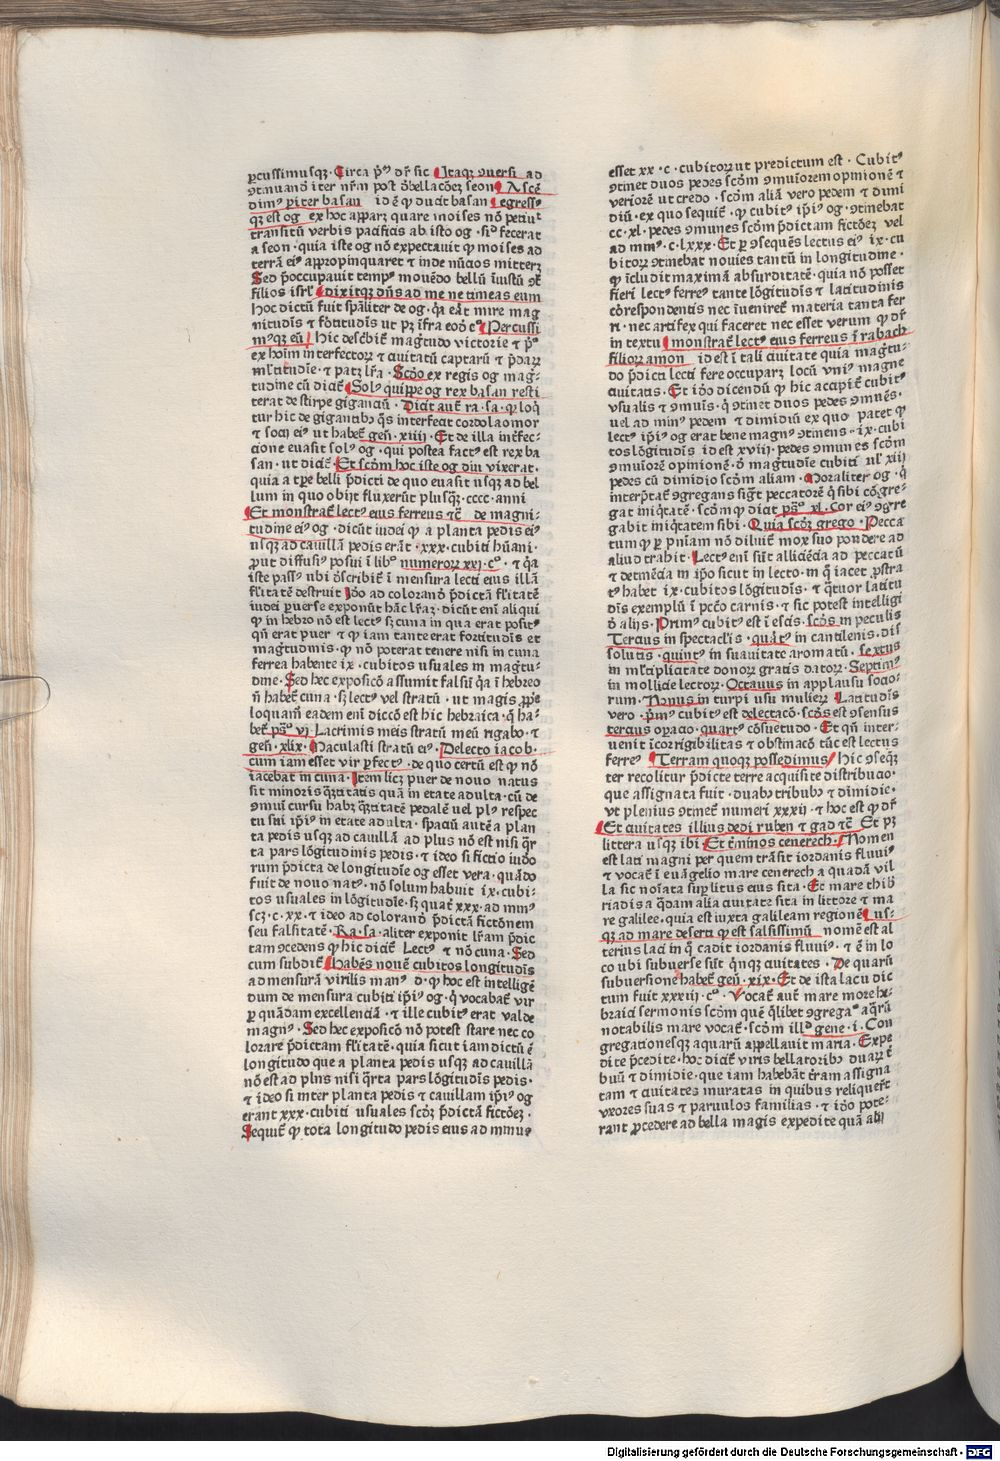 ꝑcussimusqꝫ · Circa p̄ᵐ dr̄ sic Itaqꝫ ꝯuersi ad
ꝯtinuando iter nr̄m post debellac̄oēs seon Ascē
dimꝰ ꝑ iter basan id ē qͥ ducit basan egressꝰ
qꝫ est og ex hoc apparꝫ quare moises nō petiuit
transitū verbis pacificis ab isto og · sic̄ fecerat
a seon · quia iste og nō expectauit ꝙ moises ad
terrā ei appropinquaret ⁊ inde nūcios mitterꝫ
Sed p̄occupauit tempꝰ mouēdo bellū iniustū ꝯtͣ
filios isrl̄ dixitqꝫ dn̄s ad me ne timeas eum
hoc dictū fuit sp̄aliter de og · qͥa erāt mire mag
nitudīs ⁊ fortitudīs ut pꝫ īfra eodē cͦ Percussi
mꝰqꝫ eū hic describit̄ magnitudo victorie ⁊ pͦ
ex hoīm interfectorꝫ ⁊ ciuitatū captarū ⁊ p̄darꝫ
ml̄titudīe · ⁊ patꝫ lr̄a · Scd̄o ex regis og mag-
nitudine cū dicit̄ Solꝰ quippe og rex basan resti
terat de stirpe gigantū · Dicit aut̄ ra · sa · ꝙ loqͥ
tur hic de gigantibꝰ qͦs interfecit cordolaomor
⁊ socij eiꝰ ut habet̄ gen̄ · xiiii · Et de illa interfec-
cione euasit solꝰ og · qui postea factꝰ est rex ba
san · ut dicit̄ · Et scd̄m hoc iste og diu vixerat ·
quia a tꝑe belli p̄dicti de quo euasit usqꝫ ad bel
lum in quo obijt fluxerūt plusqͣꝫ · cccc · anni
Et monstrat̄ lectꝰ eius ferreus ⁊c̄ de magni-
tudine eiꝰ og · dicūt iudei ꝙ a planta pedis eiꝰ
usqꝫ ad cauillā pedis erāt · xxx · cubiti hūani ·
ꝓut diffusiꝰ posui ī libͦ numerorꝫ xxi · cͦ · ⁊ qͥa
iste passꝰ ubi describit̄ ī mensura lecti eius illā
fl̄itatē destruit Ideo ad colorandͦ p̄dictā fl̄itatē
iudei ꝑuerse exponūt hāc lr̄aꝫ · dicūt enī aliqui
ꝙ in hebro nō est lectꝰ sꝫ cuna in qua erat positꝰ
qn̄ erat puer ⁊ ꝙ iam tante erat fortitudīs et
magtudinis · ꝙ nō poterat tenere nisi in cuna
ferrea habente ix · cubitos usuales in magtu-
dine · Sed hec exposicͦ assumit falsū qͥa ī hebreo
n̄ habet̄ cuna · sꝫ lectꝰ vel stratū · ut magis ꝓpͥe
loquamr̄ eadem enī diccō est hic hebraica · qͥ ha-
bet̄ psͦ vj Lacrimis meis stratū meū rigabo · ⁊
gen̄ · xlix · Maculasti stratū eiꝰ · De lecto iacob ·
cum iam esset vir ꝑfectꝰ · de quo certū est ꝙ nō
iacebat in cuna · Item licꝫ puer de nouo natus
sit minoris qͣntitatis quā in etate adulta · cū de
ꝯmuni cursu habꝫ qͣntitatē pedalē uel plꝰ respec
tu sui ip̄iꝰ in etate adulta · spaciū autē a plan
ta pedis usqꝫ ad cauillā ad plus nō est nisi qͣr
ta pars lōgitudinis pedis · ⁊ ideo si fictio iudo
rum p̄dicta de longitudīe og esset vera · quādo
fuit de nouo natꝰ · nō solum habuit ix · cubi-
tos usuales in lōgitudīe · sꝫ quat̄ xxx · ad minꝰ
scꝫ · c · xx · ⁊ ideo ad colorandͦ p̄dictā fictōnem
seu falsitatē · Ra · sa · aliter exponit lr̄am p̄dic
tam ꝯcedens ꝙ hic dicit̄ Lectꝰ ⁊ nō cuna · Sed
cum subdit̄ habēs nouē cubitos longitudīs
ad mensurā virilis manꝰ d · ꝙ hoc est intelligē
dum de mensura cubiti ip̄iꝰ og · qͥ vocabat̄ vir
ꝑ quādam excellenciā · ⁊ ille cubitꝰ erat valde
magnꝰ · Sed hec exposicͦ nō potest stare nec co
lorare p̄dictam fl̄itatē · quia sicut iam dictū ē
longitudo que a planta pedis usqꝫ ad cauillā
nō est ad plus nisi qͣrta pars lōgitudīs pedis ·
⁊ ideo si inter planta pedis ⁊ cauillam ip̄iꝰ og
erant xxx · cubiti usuales scd̄ꝫ p̄dictā fictōeꝫ ·
Sequit̄ ꝙ tota longitudo pedis eius ad minus
esset xx · c · cubitorꝫ ut predictum est · Cubitꝰ
ꝯtinet duos pedes scd̄m ꝯmuiorem opinionē ⁊
veriorē ut credo · scd̄m aliā vero pedem ⁊ dimi
diū · ex quo sequit̄ · ꝙ cubitꝰ ip̄iꝰ og · ꝯtinebat
cc · xl · pedes ꝯmunes scd̄m p̄dictam fictōeꝫ vel
ad minꝰ · c · lxxx · Et ꝑ ꝯsequēs lectus eiꝰ ix · cu
bitorꝫ ꝯtinebat nouies tantū in longitudine ·
ꝙ īcludit maximā absurditatē · quia nō posset
fieri lectꝰ ferreꝰ tante lōgitudīs ⁊ latitudinis
correspondentis nec īuenireꝫ materia tanta fer
ri · nec artifex qui faceret nec esset verum ꝙ dr̄
in textu monstrat̄ lectꝰ eius ferreus ī rabach
filiorꝫ amon id est ī tali ciuitate quia magtu-
do p̄dicti lecti fere occuparꝫ locū vniꝰ magne
ciuitatis · Et ido dicendū ꝙ hic accipit̄ cubitꝰ
vsualis ⁊ ꝯmuīs · qͥ ꝯtinet duos pedes ꝯmuēs ·
uel ad minꝰ pedem ⁊ dimidiū ex quo patet ꝙ
lectꝰ ip̄iꝰ og erat bene magnꝰ ꝯtinens · ix · cubi
tos lōgitudīs id est xviii · pedes ꝯmunes scd̄m
ꝯmuiorē opinionē · de magtudīe cubiti ul̄ xiij
pedes cū dimidio scd̄m aliam · Moraliter og · qͥ
interp̄tat̄ ꝯgregans sigt̄ peccatorē qͥ sibi cōgre-
gat iniqͥtatē · scd̄m ꝙ dicit psͦ xl · Cor eiꝰ ꝯgre
gabit iniqͥtatem sibi · Quia scd̄ꝫ grego · Pecca
tum ꝙ ꝑ pn̄iam nō diluit̄ mox suo pondere ad
aliud trahit · Lectꝰ enī sūt alliciēcia ad peccatū
⁊ detinēcia in ip̄o sicut in lecto · in qͥ iacet ꝓstra
tꝰ habet ix · cubitos lōgitudīs · ⁊ qͣtuor latitu
dīs exemplū ī pccō carnis · ⁊ sic potest intelligi
de alijs · Primꝰ cubitꝰ est ī escis · scd̄s in peculis
Tercius in spectac̄lis · quartꝰ in cantilenis · dis
solutis · quintꝰ in suauitate aromatū · sextus
in ml̄tiplicitate donorꝫ gratis datorꝫ · Septimꝰ
in mollicie lectorꝫ · Octauus in applausu socio-
rum · Nonus in turpi usu mulierꝫ Latitudīs
vero · p̄mꝰ cubitꝰ est delectacō · scd̄s est ꝯsensus
tercius oꝑacio · quartꝰ cōsuetudo · Et qn̄ inter-
uenit īcorigibilitas ⁊ obstinacō tūc est lectus
ferreꝰ Terram quoqꝫ possedimus hic ꝯseqn̄
ter recolitur p̄dicte terre acquisite distribucio ·
que assignata fuit · duabꝰ tribubꝰ ⁊ dimidie ·
vt plenius ꝯtinet̄ numeri xxxii · ⁊ hoc est ꝙ dr̄
Et ciuitates illius dedi ruben ⁊ gad ⁊c̄ Et pꝫ
littera usqꝫ ibi Et t̄minos cenerech · Nomen
est laci magni per quem trāsit iordanis fluuiꝰ
⁊ vocat̄ ī euāgelio mare cenerech a quadā vil
la sic noīata suꝑ litus eius sita · Et mare thib̄
riadis a qͣdam alia ciuitate sita in littore ⁊ ma
re galilee · quia est iuxta galileam regionē us-
qꝫ ad mare deserti qͥ est salsissimū nomē est al
terius laci in qͥ cadit iordanis fluuiꝰ · ⁊ ē in lo
co ubi subuerse sūt qͥnqꝫ ciuitates · De quarū
subuersione habet̄ gen̄ · xix · Et de ista lacu dic
tum fuit xxxiij · cͦ · Vocat̄ aut̄ mare more he-
braici sermonis scd̄m quē qͥlibet ꝯgregaͦ aqͣrū
notabilis mare vocat̄ · scd̄m illͩ gene · i · Con
gregationesqꝫ aquarū appellauit maria · Expe
dite p̄cedite · hoc dicit̄ viris bellatoribꝰ duarꝫ t̄
buū ⁊ dimidie · que iam habebāt t̄ram assigna
tam ⁊ ciuitates muratas in quibus reliquer̄t
vxores suas ⁊ paruulos familias · ⁊ ido pote-
rant ꝓcedere ad bella magis expedite quā alij
Digitalisierung gefördert durch die Deutsche Forschungsgemeinschaft - DFG